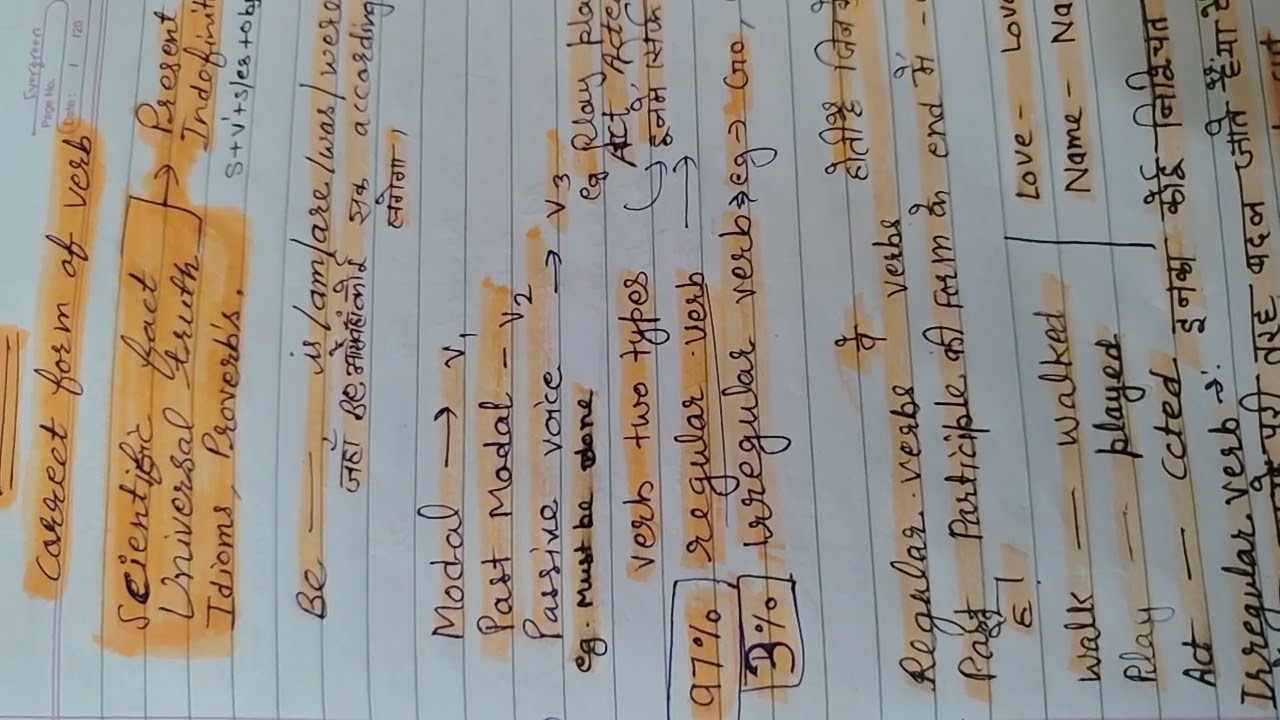 Evergreen
Page No.
Date: / /20
Correct form of verb
Scientific fact
Universal truth → Present Indefinit
Idioms, Proverb's.
S+V'+s/es+obj
Be — is/am/are/was/were
जहाँ BE
according
लगेगा,
Modal → V1
Past Modal - V2
Passive voice → V3
eg. Must be done
eg Play pla
Act Acte
इनमें सिर्फ
verb two types
97% regular verb →
3% irregular verb → eg → Go,
होती है जिनमें
Regular verbs verbs
Past Participle की form के end में -
है।
Walk — walked
Love - Love
Play — played
Name - Na
Act — cted
Irregular verb →: इनका कोई निश्चित
पूरी तरह बदल जाते हैं या